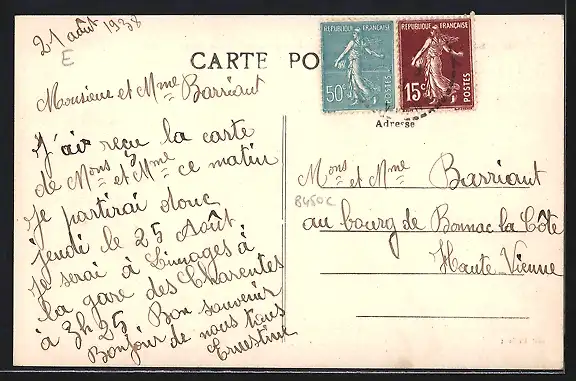 21 août 1938
E
CARTE PO
REPUBLIQUE FRANCAISE
50c
POSTES
REPUBLIQUE FRANCAISE
15c
POSTES
Adresse
Monsieur et Mme Barriant
J'ai reçu la carte
de Mons et Mme ce matin
Je partirai donc
jeudi le 25 Août
Je serai à Limoges à
la gare des Charentes
à 3h25 Bon souvenir
Bonjour de nous tous
Ernestine
Mons et Mme Barriant
8450C
au bourg de Bonnac la Côte
Haute Vienne